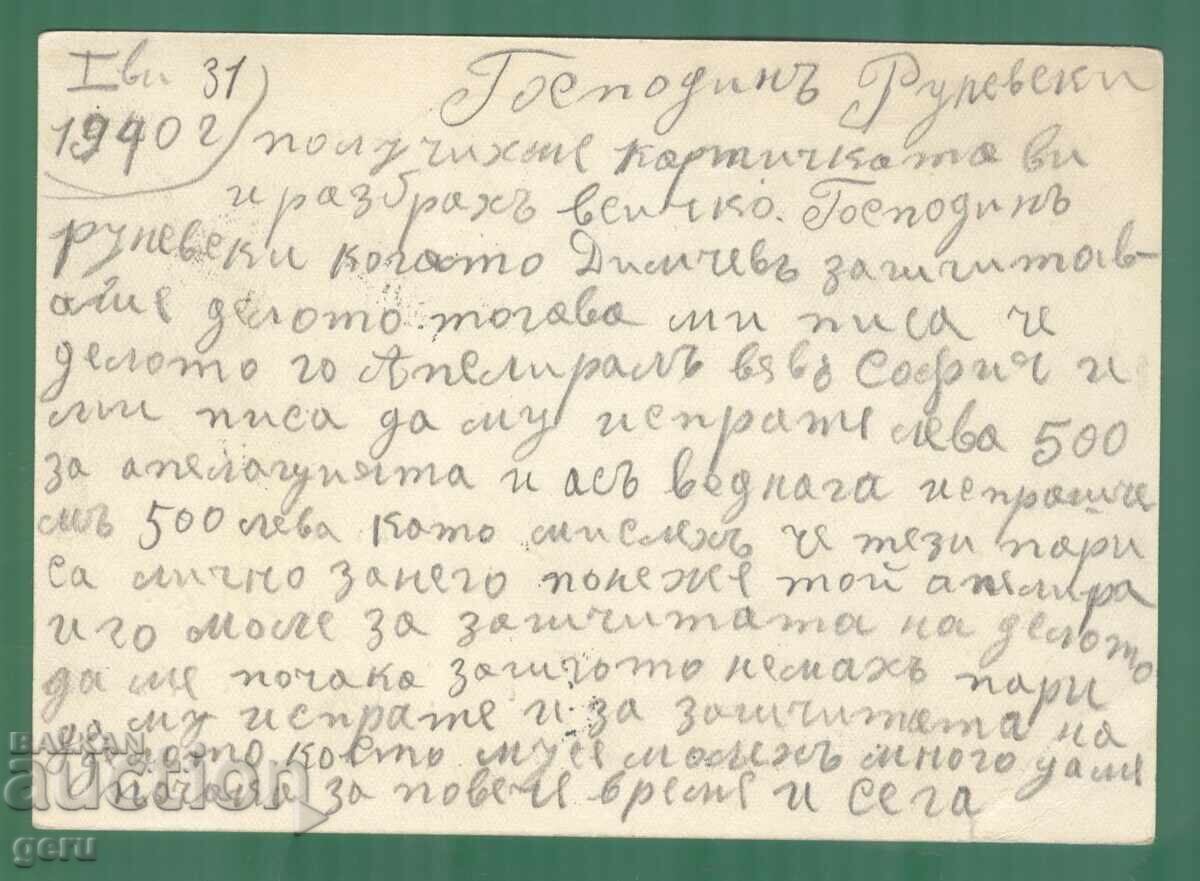 Iви 31
1940 г
Господинъ Руневски
получихме картичката ви
и разбрахъ всичко. Господинъ
Руневски когато Димчевъ зашчитав-
аше делото тогава ми писа че
делото го Апелирамъ вявъ София и
ми писа да му испрате лева 500
за апелацията и асъ веднага испраште
мъ 500 лева като мислехъ че тези пари
са лично занего понеже той апелира
и го моле за зашчитата на делото
да ме почака зашчото немахъ пари
да му испрате и за зашчитата на
делото което му се молехъ много да ме
почака за повече време и сега
BALKAN
auction
geru